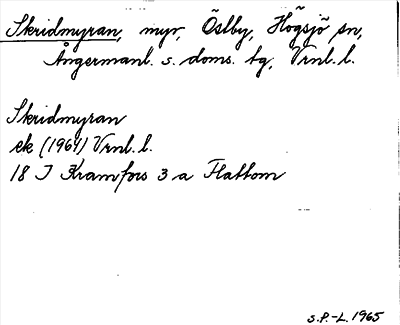 Skridmyran, myr, Östby, Högsjö sn,
Ångermanl. s. doms. tg, Vrnl. l.
Skridmyran
ek (1964) Vrnl. l.
18 I Kramfors 3 a Flattom
S.P.-L. 1965